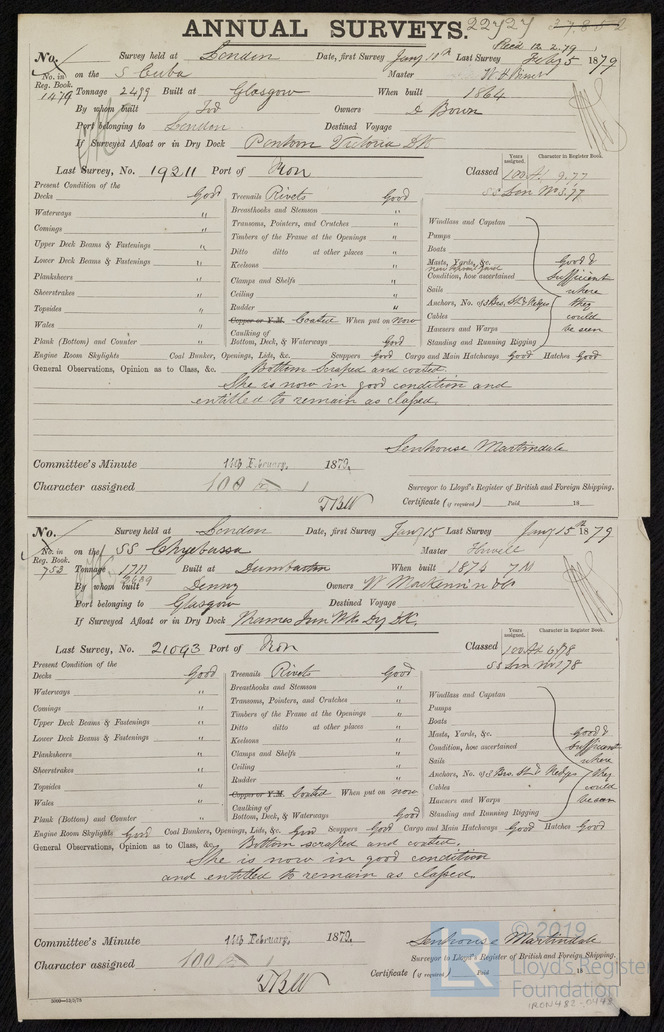 ANNUAL SURVEYS. 22727
Recd 12.2.79
No. Survey held at London Date, first Survey Jany 10th Last Survey Feby 5 1879
No. in Reg. Book. 1479 on the S Cuba Master
Tonnage 2499 Built at Glasgow When built 1864
By whom built Tod Owners
Port belonging to London Destined Voyage
If Surveyed Afloat or in Dry Dock Victoria Dk
Last Survey, No. 19211 Port of Iron Classed 100 A1 9.77
Years assigned. Character in Register Book.
SS Lon No 3.77
Present Condition of the
Decks Good Treenails Rivets Good
Waterways " Breasthooks and Stemson "
Comings " Transoms, Pointers, and Crutches "
Upper Deck Beams & Fastenings " Timbers of the Frame at the Openings "
Lower Deck Beams & Fastenings " Ditto ditto at other places "
Planksheers " Keelsons "
Sheerstrakes " Clamps and Shelfs "
Topsides " Ceiling "
Wales " Rudder "
Plank (Bottom) and Counter " Copper or Y.M. Coated When put on now
Caulking of Bottom, Deck, & Waterways Good
Windlass and Capstan
Pumps
Boats
Masts, Yards, &c. Good &
Condition, how ascertained Sufficient
Sails where
Anchors, No. of 3 Brs. St & Kedges they
Cables could
Hawsers and Warps be seen
Standing and Running Rigging
Engine Room Skylights Coal Bunker, Openings, Lids, &c. Scuppers Good Cargo and Main Hatchways Good Hatches Good
General Observations, Opinion as to Class, &c. Bottom scraped and coated.
She is now in good condition and
entitled to remain as classed.
Senhouse Martindale
Committee's Minute 14th February, 1879.
Character assigned 100 A 1
Surveyor to Lloyd's Register of British and Foreign Shipping.
Certificate (if required) Paid 18
No. Survey held at London Date, first Survey Jany 15 Last Survey Jany 15th 1879
No. in Reg. Book. 752 on the SS Chyebassa Master
Tonnage 1711 2639 Built at Dumbarton When built 1874 7 M
By whom built Denny Owners W Mackenzie & Co
Port belonging to Glasgow Destined Voyage
If Surveyed Afloat or in Dry Dock Thames Iron Wks Dry Dk.
Last Survey, No. 21093 Port of Iron Classed 100 A1 6.78
Years assigned. Character in Register Book.
SS Lon No 1 78
Present Condition of the
Decks Good Treenails Rivets Good
Waterways " Breasthooks and Stemson "
Comings " Transoms, Pointers, and Crutches "
Upper Deck Beams & Fastenings " Timbers of the Frame at the Openings "
Lower Deck Beams & Fastenings " Ditto ditto at other places "
Planksheers " Keelsons "
Sheerstrakes " Clamps and Shelfs "
Topsides " Ceiling "
Wales " Rudder "
Plank (Bottom) and Counter " Copper or Y.M. Coated When put on now
Caulking of Bottom, Deck, & Waterways Good
Windlass and Capstan
Pumps
Boats
Masts, Yards, &c. Good &
Condition, how ascertained Sufficient
Sails where
Anchors, No. of 3 Brs. St & Kedge they
Cables could
Hawsers and Warps be seen
Standing and Running Rigging
Engine Room Skylights Good Coal Bunkers, Openings, Lids, &c. Good Scuppers Good Cargo and Main Hatchways Good Hatches Good
General Observations, Opinion as to Class, &c. Bottom scraped and coated.
She is now in good condition
and entitled to remain as classed.
Committee's Minute 14th February, 1879.
Senhouse Martindale
Character assigned 100 A 1
Surveyor to Lloyd's Register of British and Foreign Shipping.
Certificate (if required) Paid 18
© 2019
LR Lloyd's Register Foundation
IRON482-0498